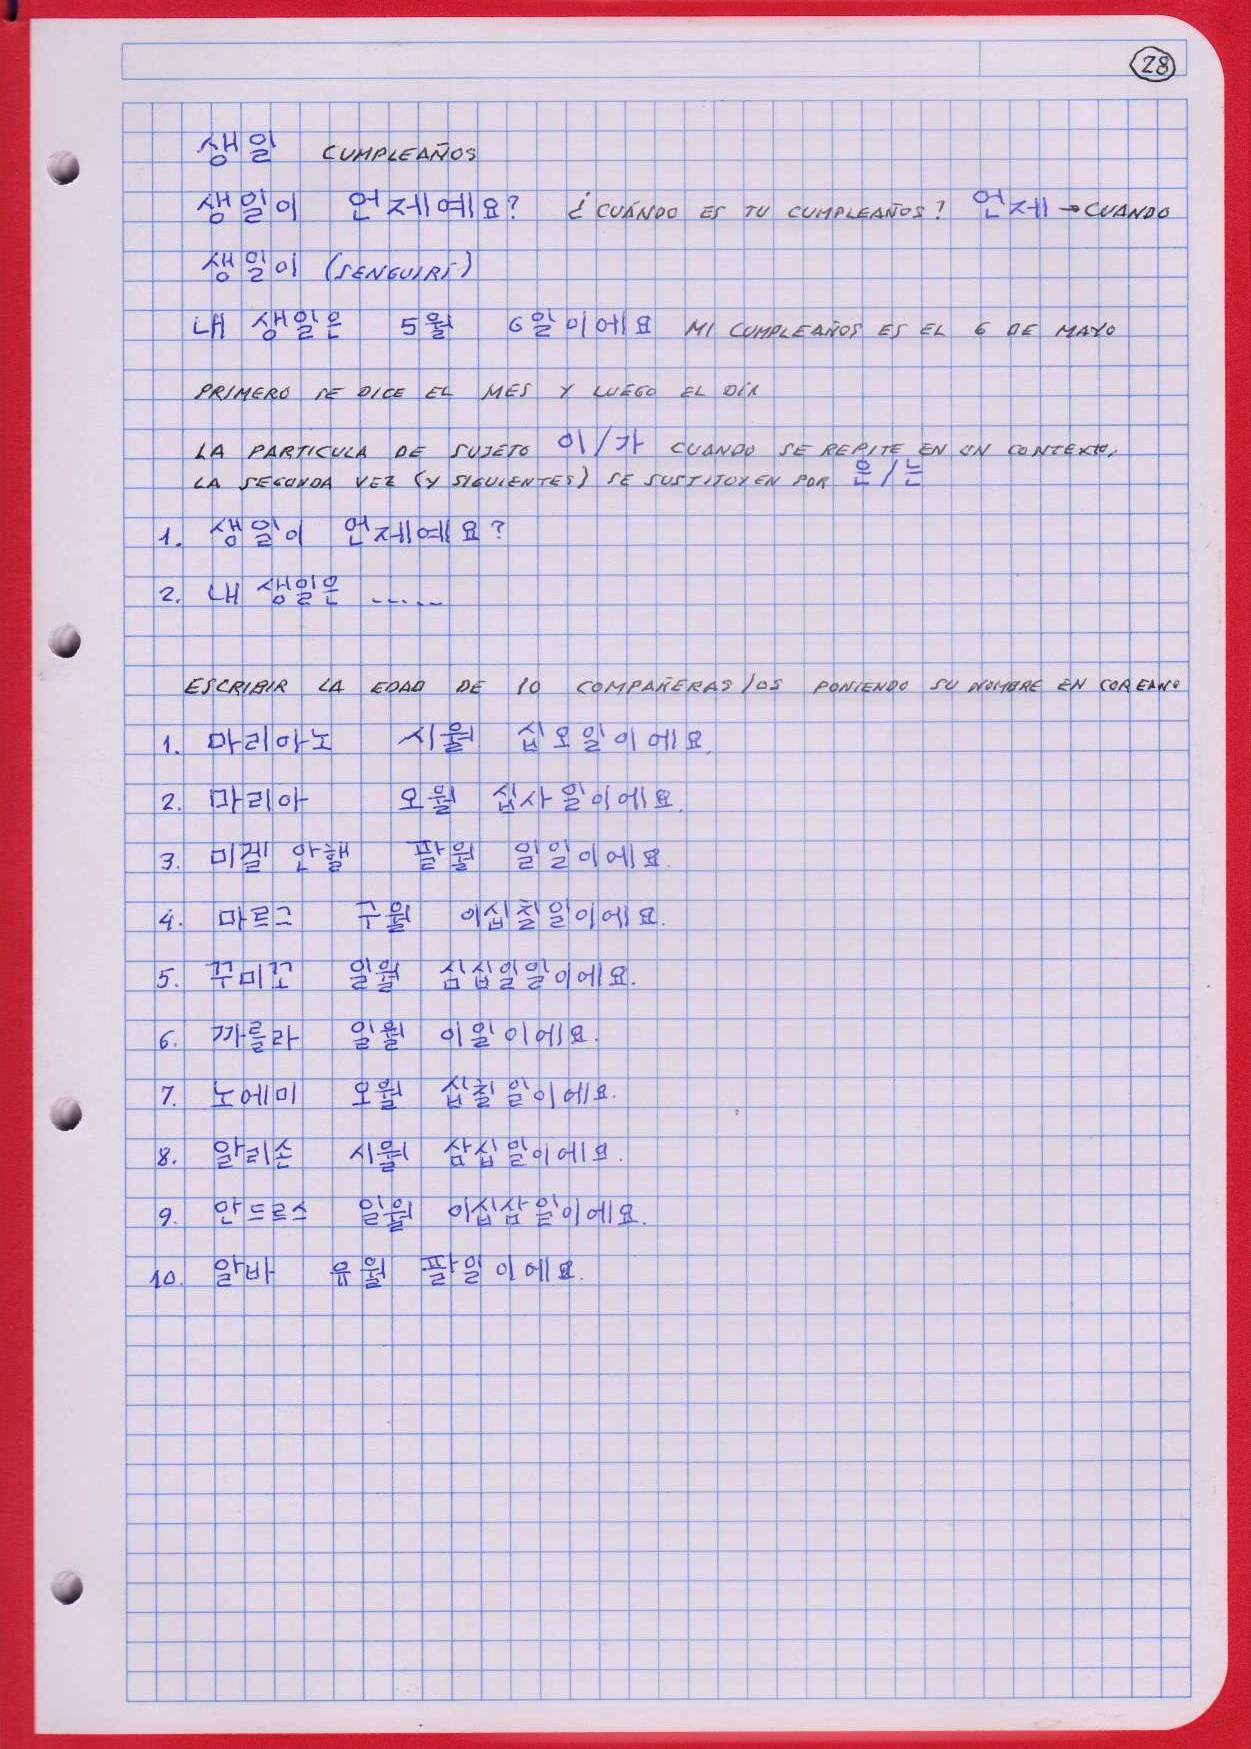 28
생일 CUMPLEAÑOS
생일이 언제예요? ¿CUÁNDO ES TU CUMPLEAÑOS? 언제 → CUANDO
생일이 (SENGUIRI)
내 생일은 5월 6일이에요 MI CUMPLEAÑOS ES EL 6 DE MAYO
PRIMERO SE DICE EL MES Y LUEGO EL DÍA
LA PARTICULA DE SUJETO 이/가 CUANDO SE REPITE EN UN CONTEXTO,
LA SEGUNDA VEZ (Y SIGUIENTES) SE SUSTITUYEN POR 은/는
1. 생일이 언제예요?
2. 내 생일은 ......
ESCRIBIR LA EDAD DE 10 COMPAÑERAS/OS PONIENDO SU NOMBRE EN COREANO
1. 마리아노 시월 십오일이에요.
2. 마리아 오월 십사일이에요.
3. 미겔 안헬 팔월 일일이에요.
4. 마르그 구월 이십칠일이에요.
5. 꾸미꼬 일월 삼십일일이에요.
6. 까를라 일월 이일이에요.
7. 노에미 오월 십칠일이에요.
8. 알리손 시월 삼십일이에요.
9. 안드르스 일월 이십삼일이에요.
10. 알바 유월 팔일이에요.